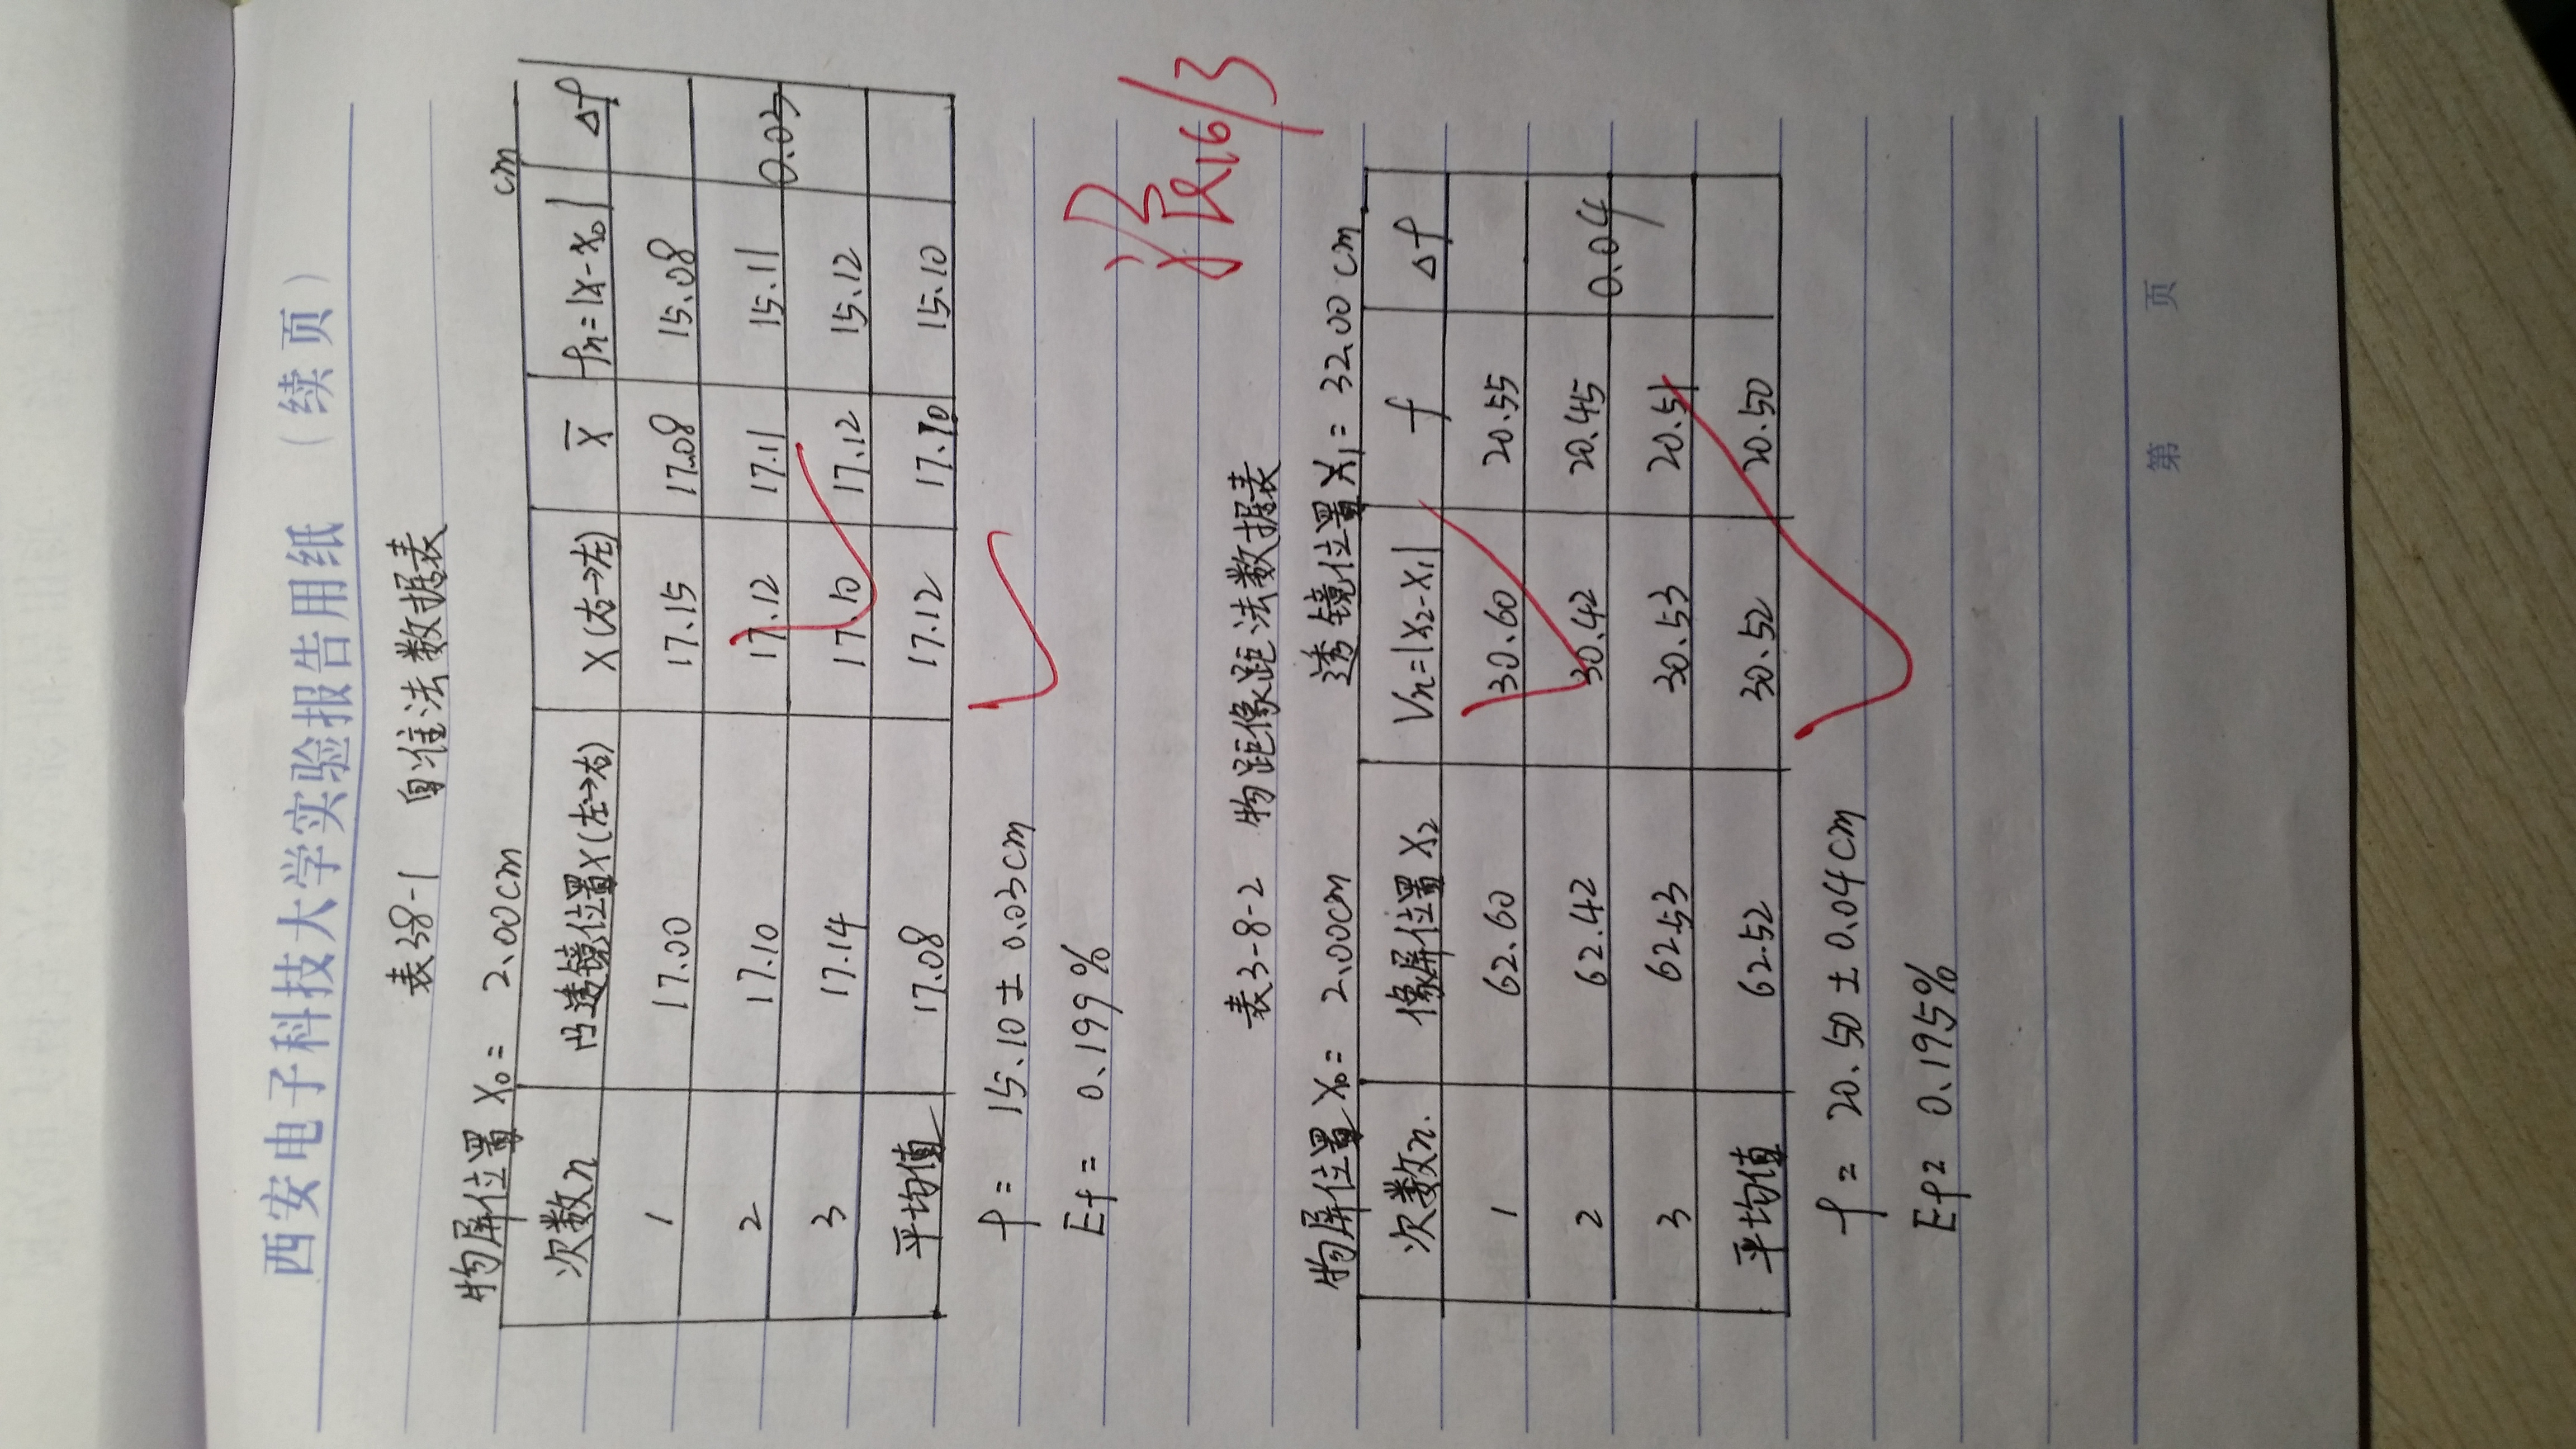 西安电子科技大学实验报告用纸（续 页）
表38-1 自准法数据表
物屏位置 X₀= 2.00cm cm
次数n 凸透镜位置X(左→右) X(右→左) X̄ fn=|X-X₀| Δf
1 17.00 17.15 17.08 15.08
2 17.10 17.12 17.11 15.11 0.03
3 17.14 17.10 17.12 15.12
平均值 17.08 17.12 17.10 15.10
f = 15.10 ± 0.03cm
Ef = 0.199%
16/3
表3-8-2 物距像距法数据表
物屏位置 X₀= 2.00cm 透镜位置X₁= 32.00 cm
次数n. 像屏位置 X₂ Vn=|X₂-X₁| f Δf
1 62.60 30.60 20.55
2 62.42 30.42 20.45 0.04
3 62.53 30.53 20.51
平均值 62.52 30.52 20.50
f = 20.50 ± 0.04cm
Ef= 0.195%
第 页